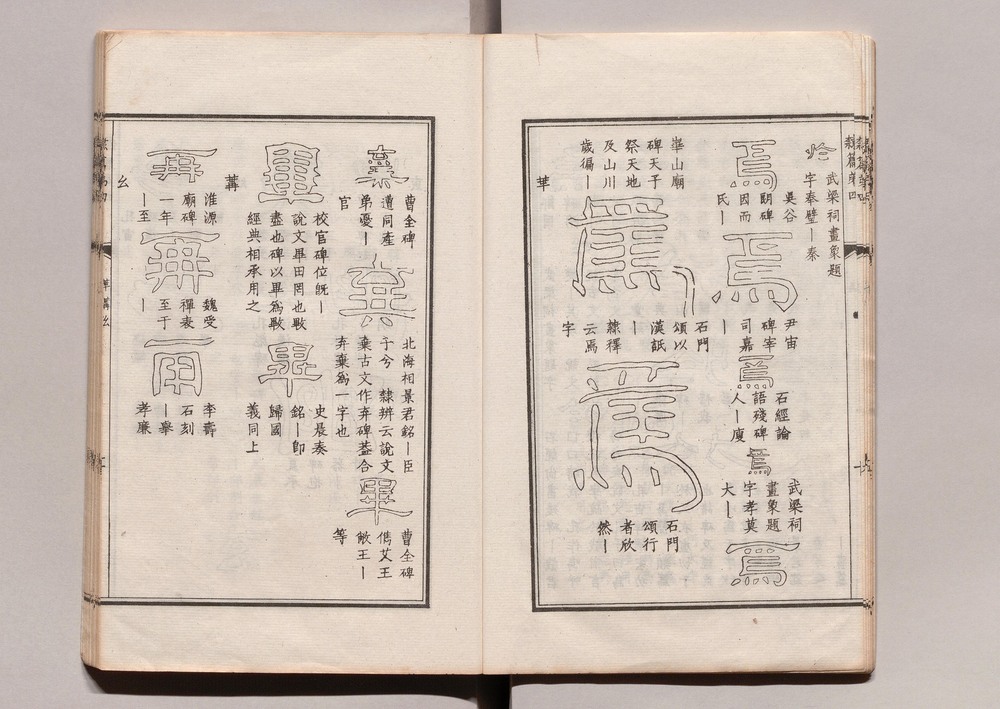 隸篇第四
武梁祠畫象題
字奉璧｜秦
焉
吳谷
朗碑
因而
氏｜
焉
尹宙
碑宰
司嘉
｜
焉
石經論
語殘碑
人｜廋
焉
武梁祠
畫象題
字孝莫
大｜
焉
華山廟
碑天子
祭天地
及山川
歲徧｜
焉
石門
頌以
漢詆
隸釋
云焉
字
焉
石門
頌行
者欣
然｜
華
棄
曹全碑
遭同產
弟憂｜
官
棄
北海相景君銘｜臣
于兮 隸辨云說文
棄古文作弃碑蓋合
弃棄爲一字也
畢
曹全碑
儁艾王
敞王｜
等
畢
校官碑位旣｜
說文畢田罔也斁
盡也碑以畢爲斁
經典相承用之
畢
史晨奏
銘｜卽
歸國
義同上
冓
再
淮源
廟碑
一年
｜至
再
魏受
禪表
至于
｜
再
李壽
石刻
｜舉
孝廉
幺
華冓幺